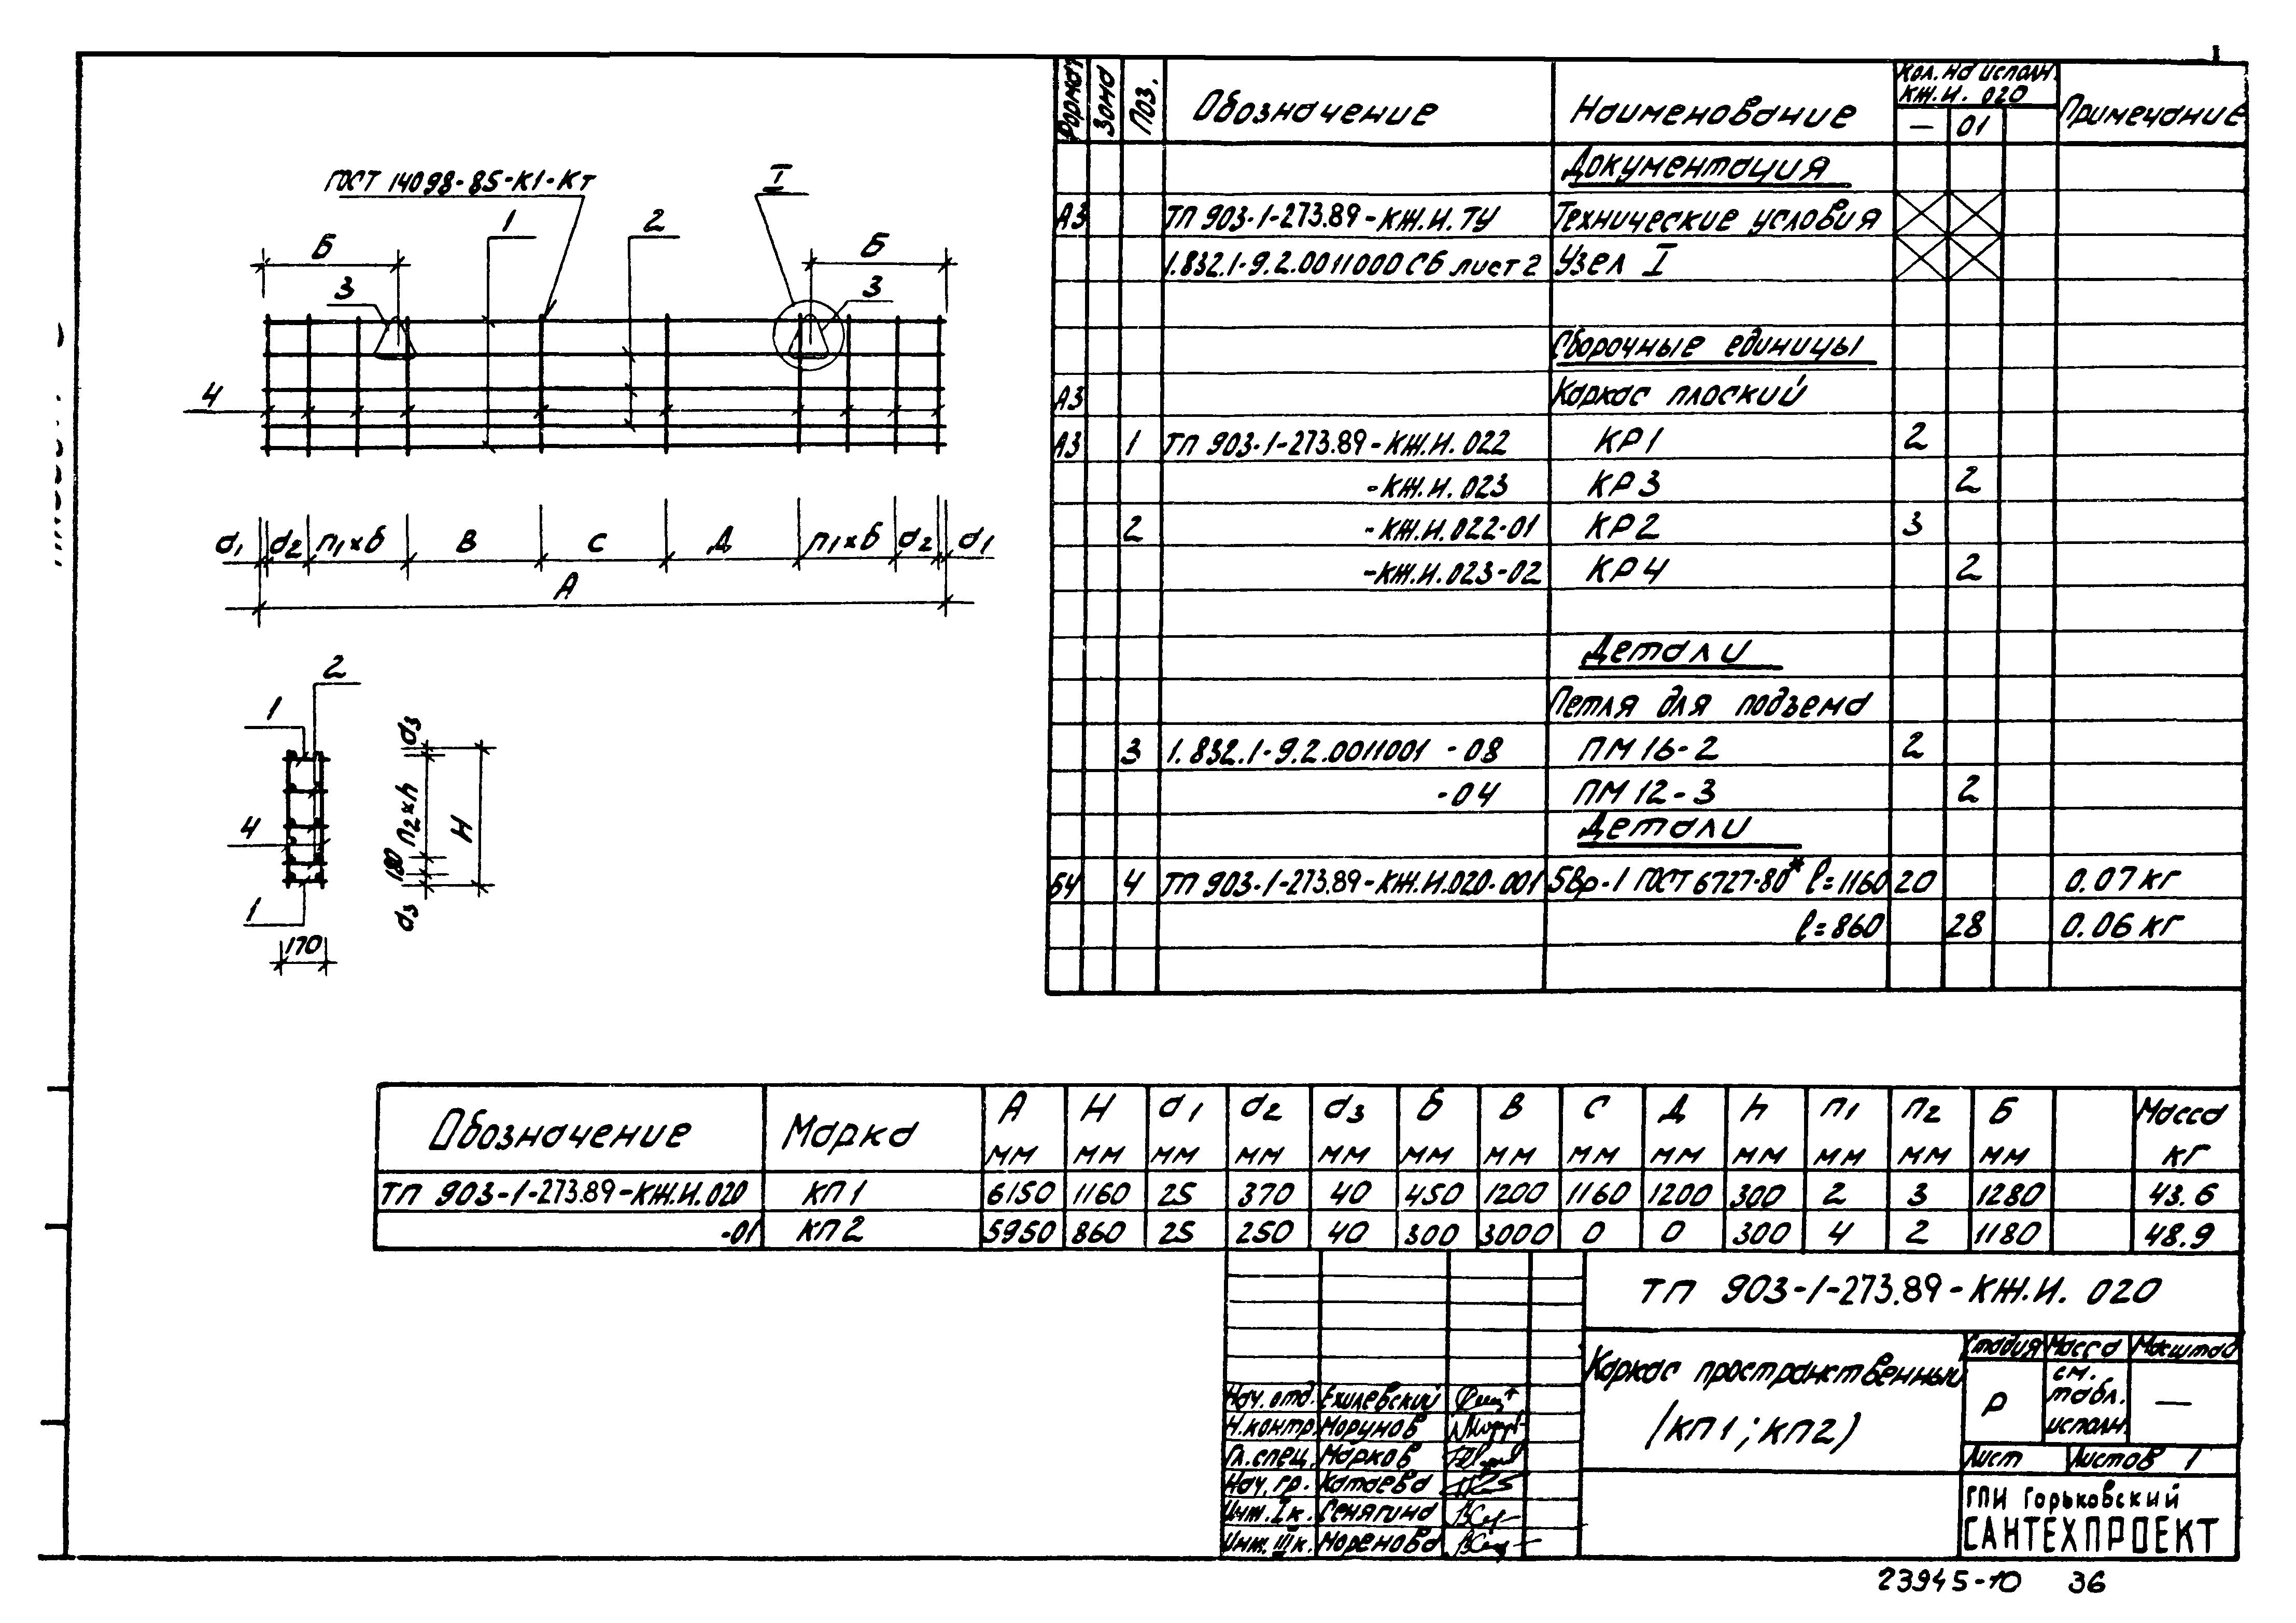 ГОСТ 14098-85-К1-Кт
I
1
2
Б
Б
3
3
4
d1 d2 n1×б В С Д n1×б d2 d1
А
2
1
4
1
170
d3
n2×h
180
d3
Н
Формат Зона Поз. Обозначение Наименование Кол. на исполн. КЖ.И. 020 Примечание
— 01
Документация
А3 ТП 903-1-273.89-КЖ.И.ТУ Технические условия
1.832.1-9.2.0011000 СБ лист 2 Узел I
Сборочные единицы
А3 Каркас плоский
А3 1 ТП 903-1-273.89-КЖ.И.022 КР1 2
-КЖ.И.023 КР3 2
2 -КЖ.И.022-01 КР2 3
-КЖ.И.023-02 КР4 2
Детали
Петля для подъема
3 1.832.1-9.2.0011001 -08 ПМ16-2 2
-04 ПМ12-3 2
Детали
Б4 4 ТП 903-1-273.89-КЖ.И.020-001 5Вр-1 ГОСТ 6727-80* l=1160 20 0.07 кг
l=860 28 0.06 кг
Обозначение Марка А мм Н мм d1 мм d2 мм d3 мм б мм В мм С мм Д мм h мм n1 мм n2 мм Б мм Масса кг
ТП 903-1-273.89-КЖ.И.020 КП1 6150 1160 25 370 40 450 1200 1160 1200 300 2 3 1280 43.6
-01 КП2 5950 860 25 250 40 300 3000 0 0 300 4 2 1180 48.9
ТП 903-1-273.89-КЖ.И. 020
Каркас пространственный
(КП1; КП2)
Стадия Масса Масштаб
Р см. табл. исполн. —
Лист Листов 1
ГПИ Горьковский
САНТЕХПРОЕКТ
Нач. отд. Ехилевский
Н.контр. Морунов
Гл.спец. Марков
Нач. гр. Катаева
Инж.Iк. Сенягина
Инж.IIIк. Моренова
23945-10 36